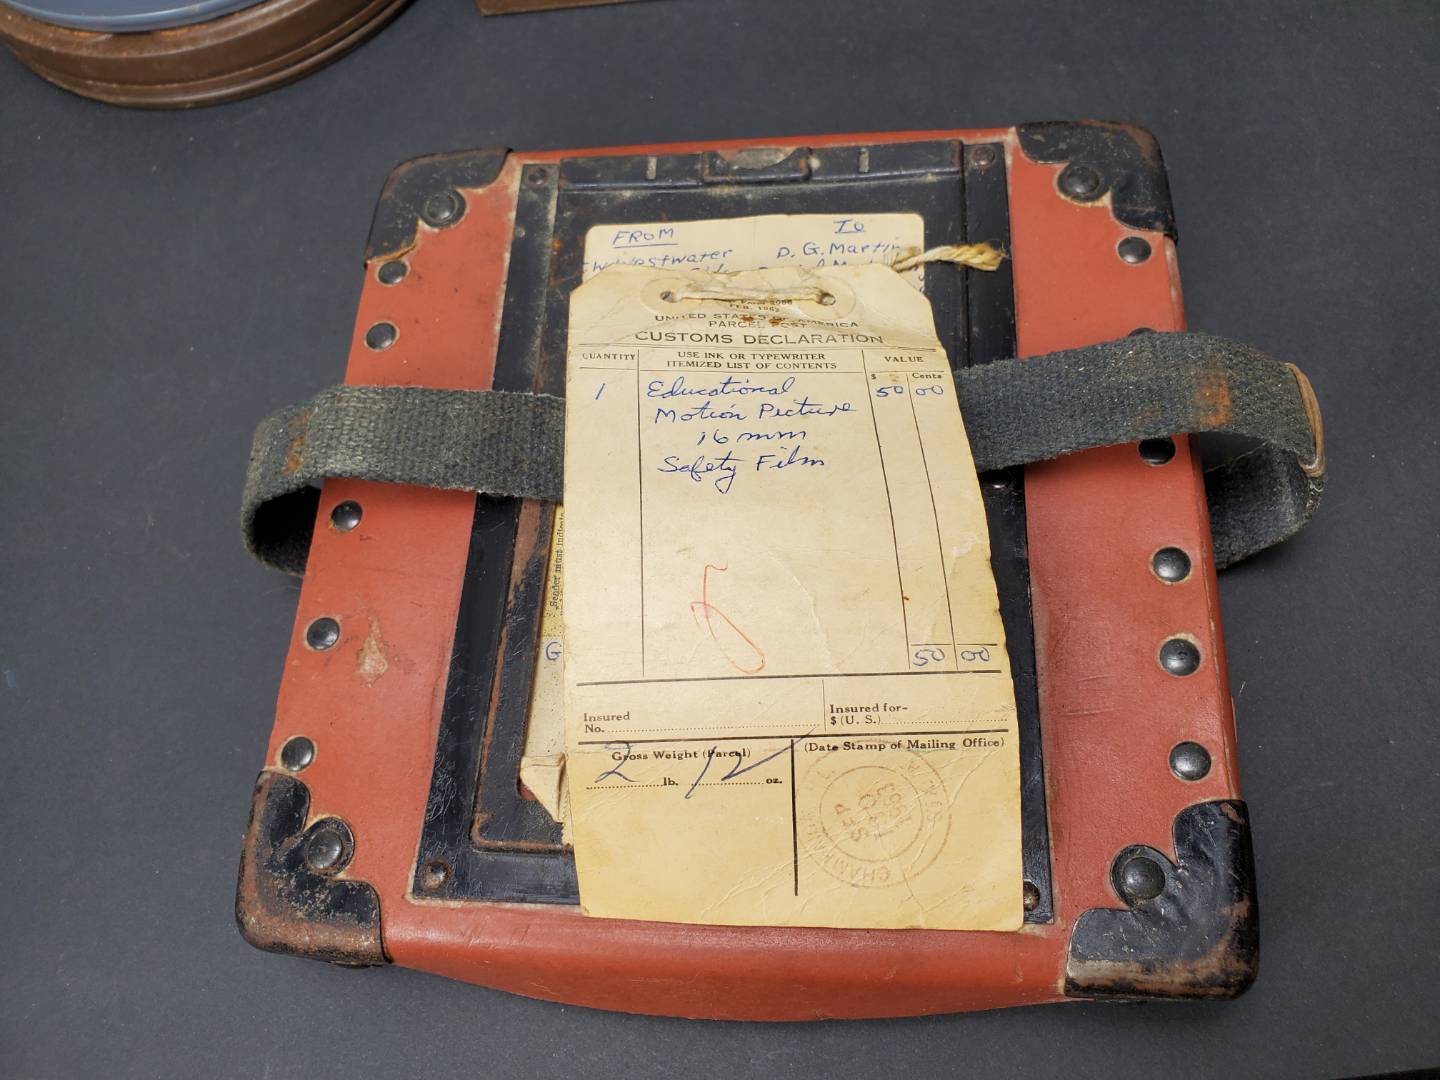 FROM
TO
Westwater
D. G. Martin
UNITED STATES OF AMERICA
PARCEL POST
CUSTOMS DECLARATION
QUANTITY
USE INK OR TYPEWRITER
ITEMIZED LIST OF CONTENTS
VALUE
$ Cents
1 Educational 50 00
Motion Picture
16 mm
Safety Film
Sender must indicate
G.
50 00
Insured
No.
Insured for-
$ (U. S.)
Gross Weight (Parcel)
2 lb. 12 oz.
(Date Stamp of Mailing Office)
SEP